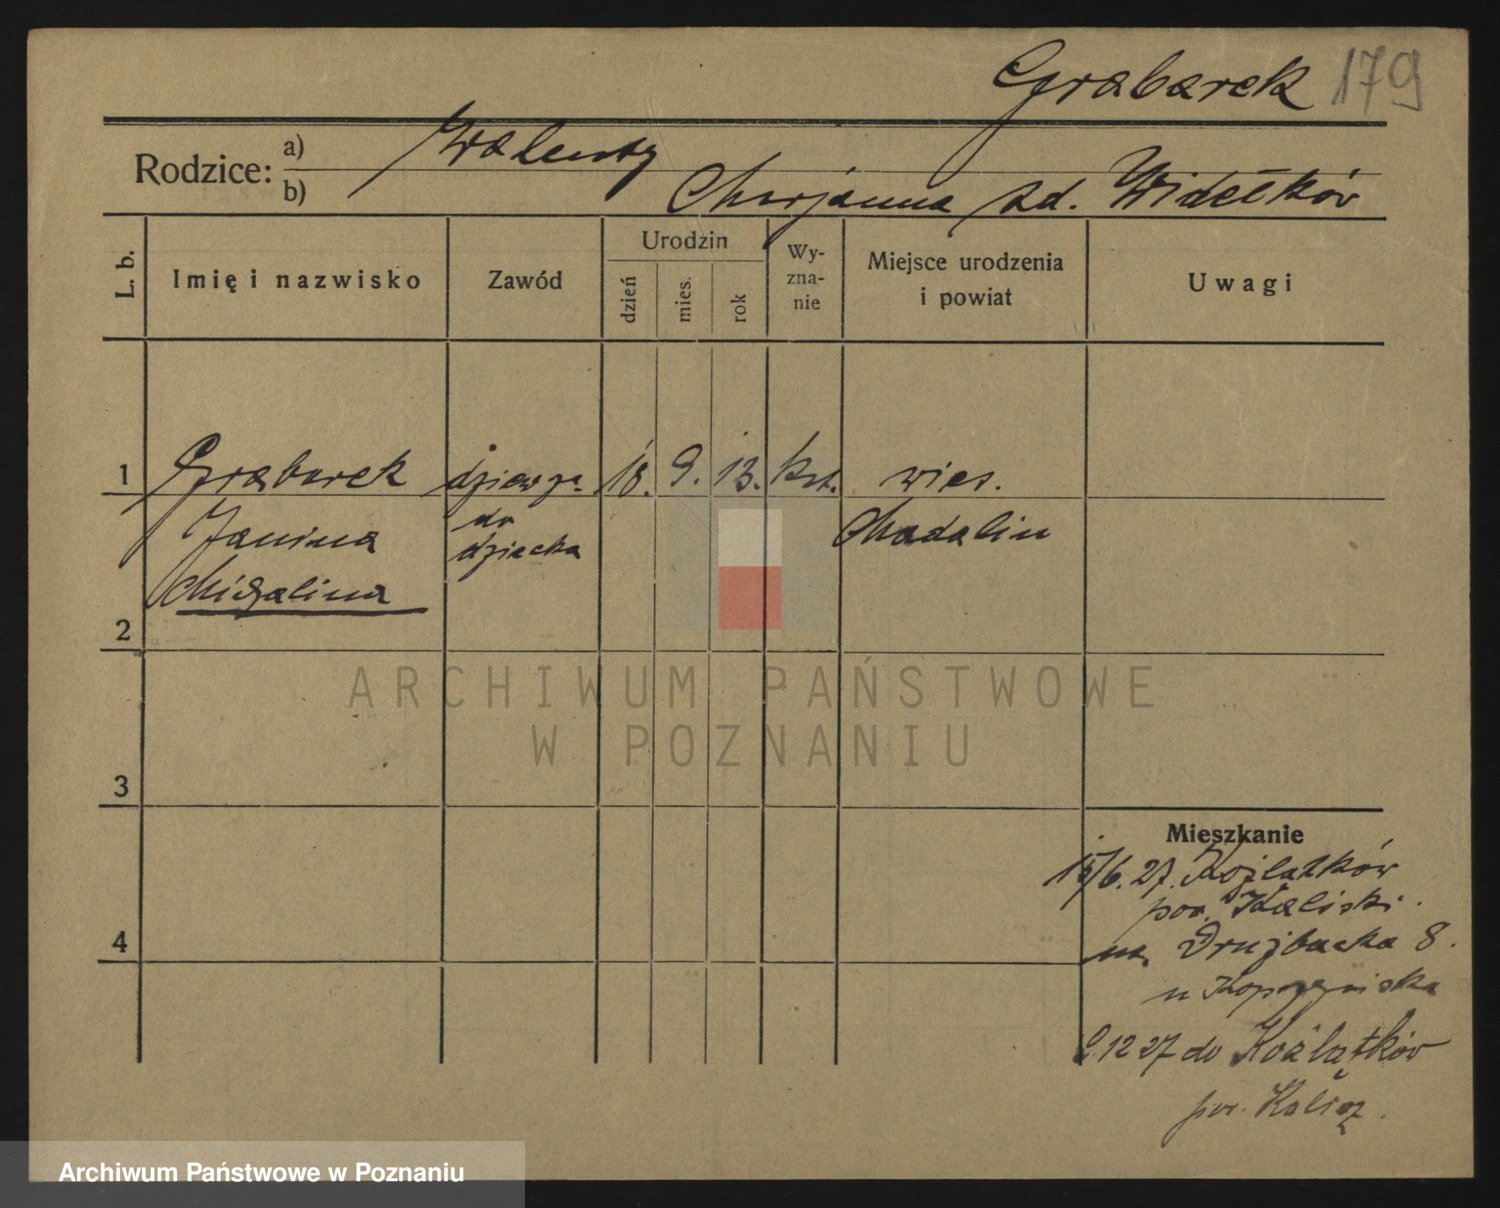 Grabarek 179
Rodzice: a) Walenty
b) Marjanna zd. Widełków
L. b. Imię i nazwisko Zawód Urodzin dzień mies. rok Wyznanie Miejsce urodzenia i powiat Uwagi
1 Grabarek dziewcz. 18. 9. 13. kat. wieś.
Janina do Madalin
dziecka
Michalina
2
ARCHIWUM PAŃSTWOWE
W POZNANIU
3
Mieszkanie
15/6. 27. Koźlątków
pow. Kaliski.
4
na. Drużbacka 8.
u
9.12 27 do Koźlątków
pow. Kalisz.
Archiwum Państwowe w Poznaniu